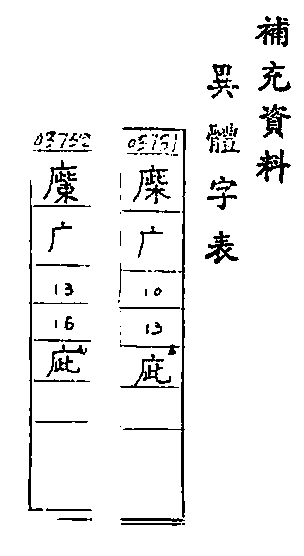 補充資料
異體字表
03751
广
10
13
庛
03752
广
13
16
庛